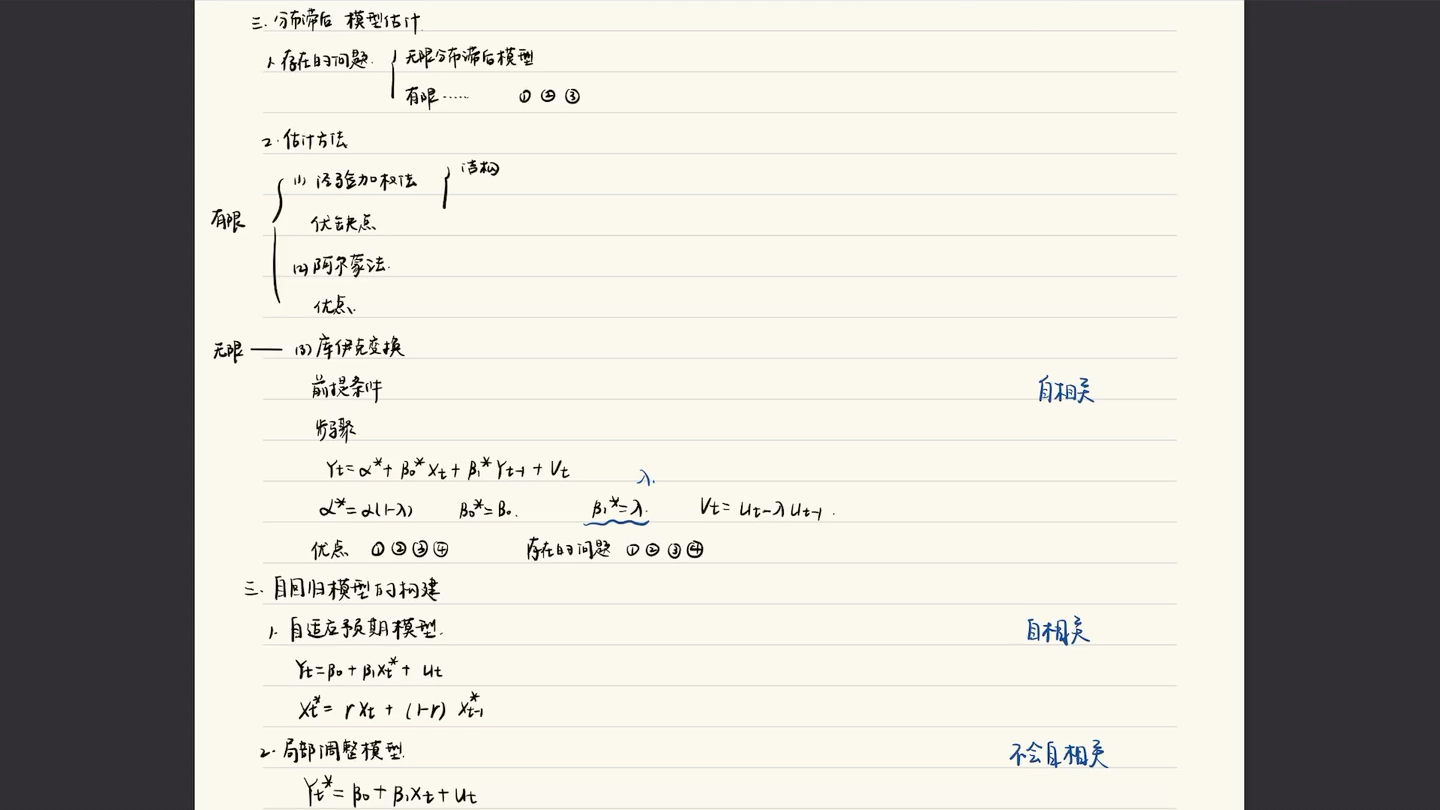 三. 分布滞后 模型估计
1. 存在的问题 { 无限分布滞后模型
有限…… ① ② ③
2. 估计方法
(1) 经验加权法 { 结构
有限
优缺点
(2) 阿尔蒙法.
优点.
无限 — (3) 库伊克变换
前提条件 自相关
步骤
Yt = α* + β0* Xt + β1* Yt-1 + Vt
λ.
α* = α(1-λ) β0* = β0. β1* = λ. Vt = ut - λ ut-1.
优点 ① ② ③ ④ 存在的问题 ① ② ③ ④
三. 自回归模型的构建
1. 自适应预期模型. 自相关
Yt = β0 + β1 Xt* + ut
Xt* = r Xt + (1-r) X*t-1
2. 局部调整模型. 不会自相关
Yt* = β0 + β1 Xt + ut